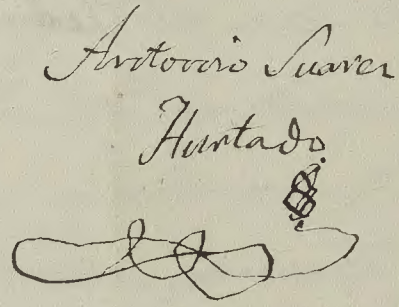 Antonio Suarez
Hurtado